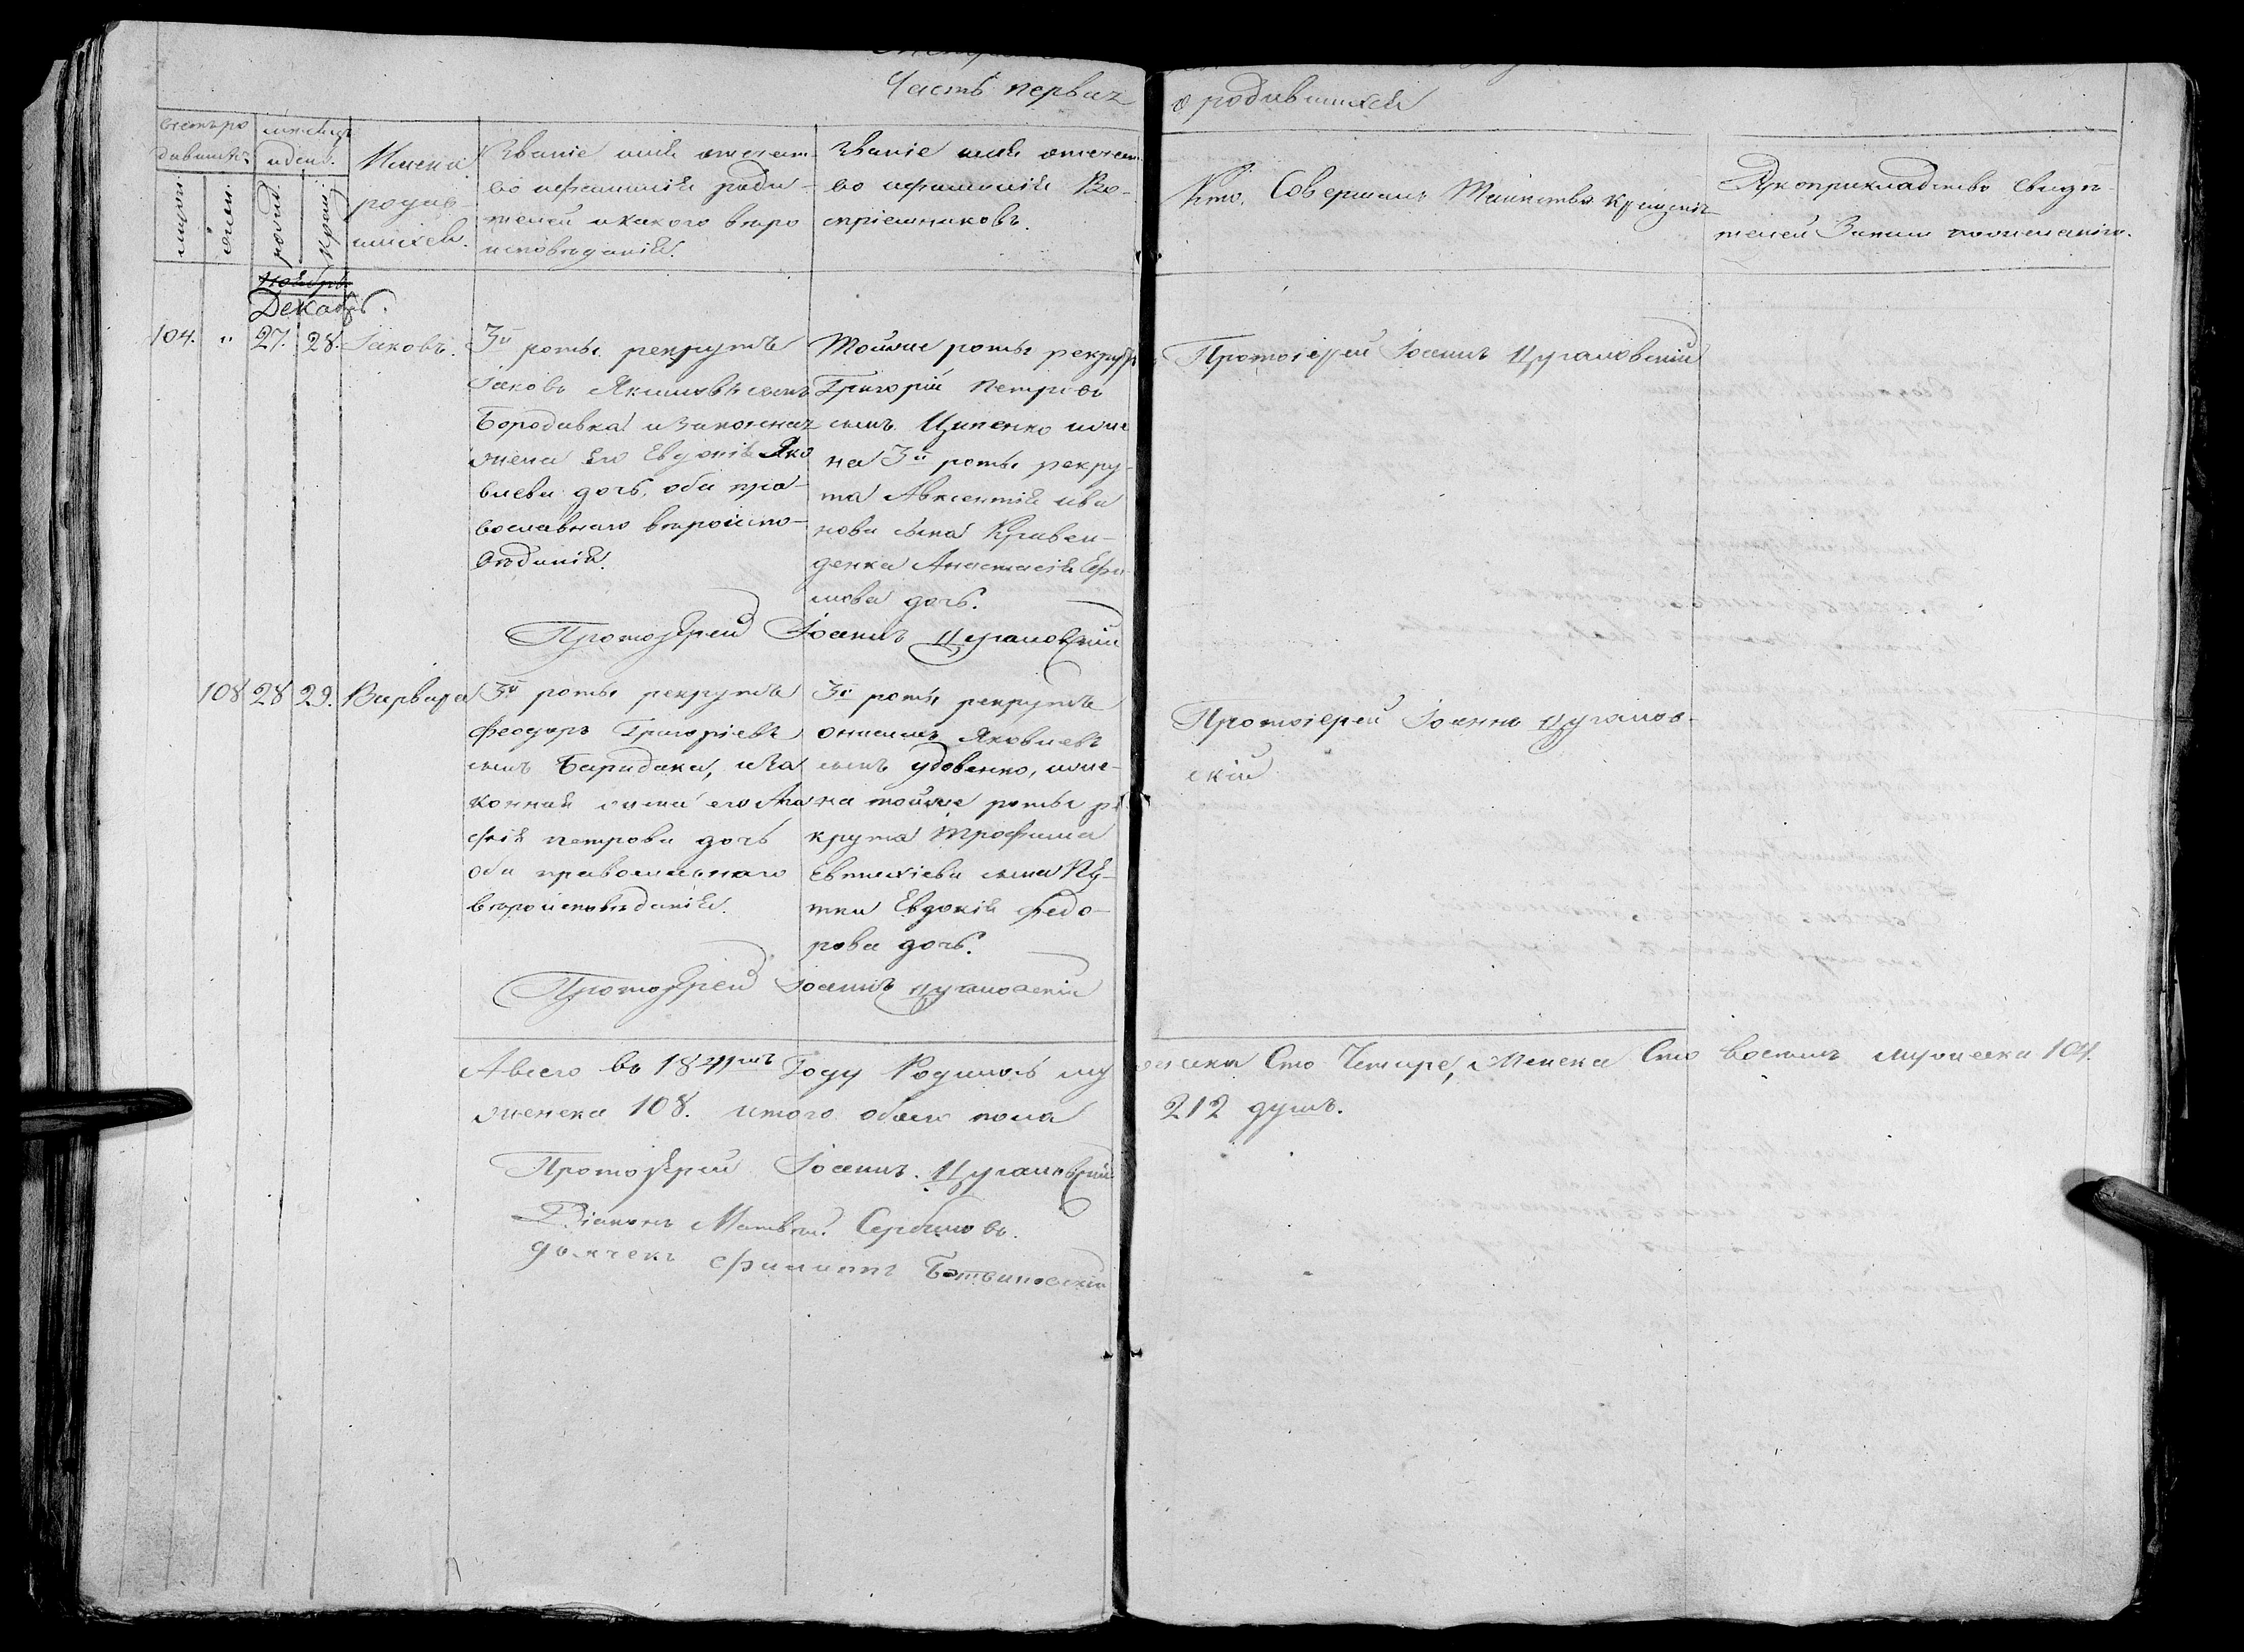 Часть первая о родившихся
счетъ ро
дивших.
месяцъ
и день.
Имена
родив-
шихся.
Званіе имя отечест-
во и фамилія роди-
телей и какого веро
исповеданія.
Званіе имя отечест-
во и фамилія Во-
спріемниковъ.
Кто Совершалъ Таинство крещенія
Рукоприкладство свиде-
телей Записи по желанію.
мужск.
женск.
рожд.
крещ.
Ноябрь
Декабрь.
104. " 27. 28. Іаковъ.
3й роты рекрутъ
Іаковъ Якимовъ сынъ
Бородавка и законная
жена его Евдокія Яко
влева дочь, оба пра-
вославнаго вероиспо-
ведания.
Тойже роты рекрутъ
Григорій Петровъ
сынъ Ципенко и же
на 3й роты рекру-
та Авксентія Ива
нова сына Кривен-
денка Анастасія Ефи-
мова дочь.
Протоіерей Іоаннъ Цугановскій
Протоіерей Іоаннъ Цугановскій
108 28 29. Варвара
3й роты рекрутъ
Феодоръ Григоріевъ
сынъ Баридака, и за
конная жена его Ага
фія Петрова дочь
оба православнаго
вероисповеданія.
3й роты рекрутъ
Онисимъ Яковлевъ
сынъ Удовенко, и же-
на тойже роты ре
крута Трофима
Евтихіева сына
Евдокія Федо-
рова дочь.
Протоіерей Іоаннъ Цуганов-
скій
Протоіерей Іоаннъ Цугановскій
А всего въ 1841мъ Году Родилось му жеска Сто Четыре, Женска Сто восемь мужеска 104.
женска 108. итого обоего пола 212 душъ.
Протоіерей Іоаннъ Цугановскій
Діаконъ Матвей Сербиновъ.
дьячекъ Филиппъ Ботвиновскій